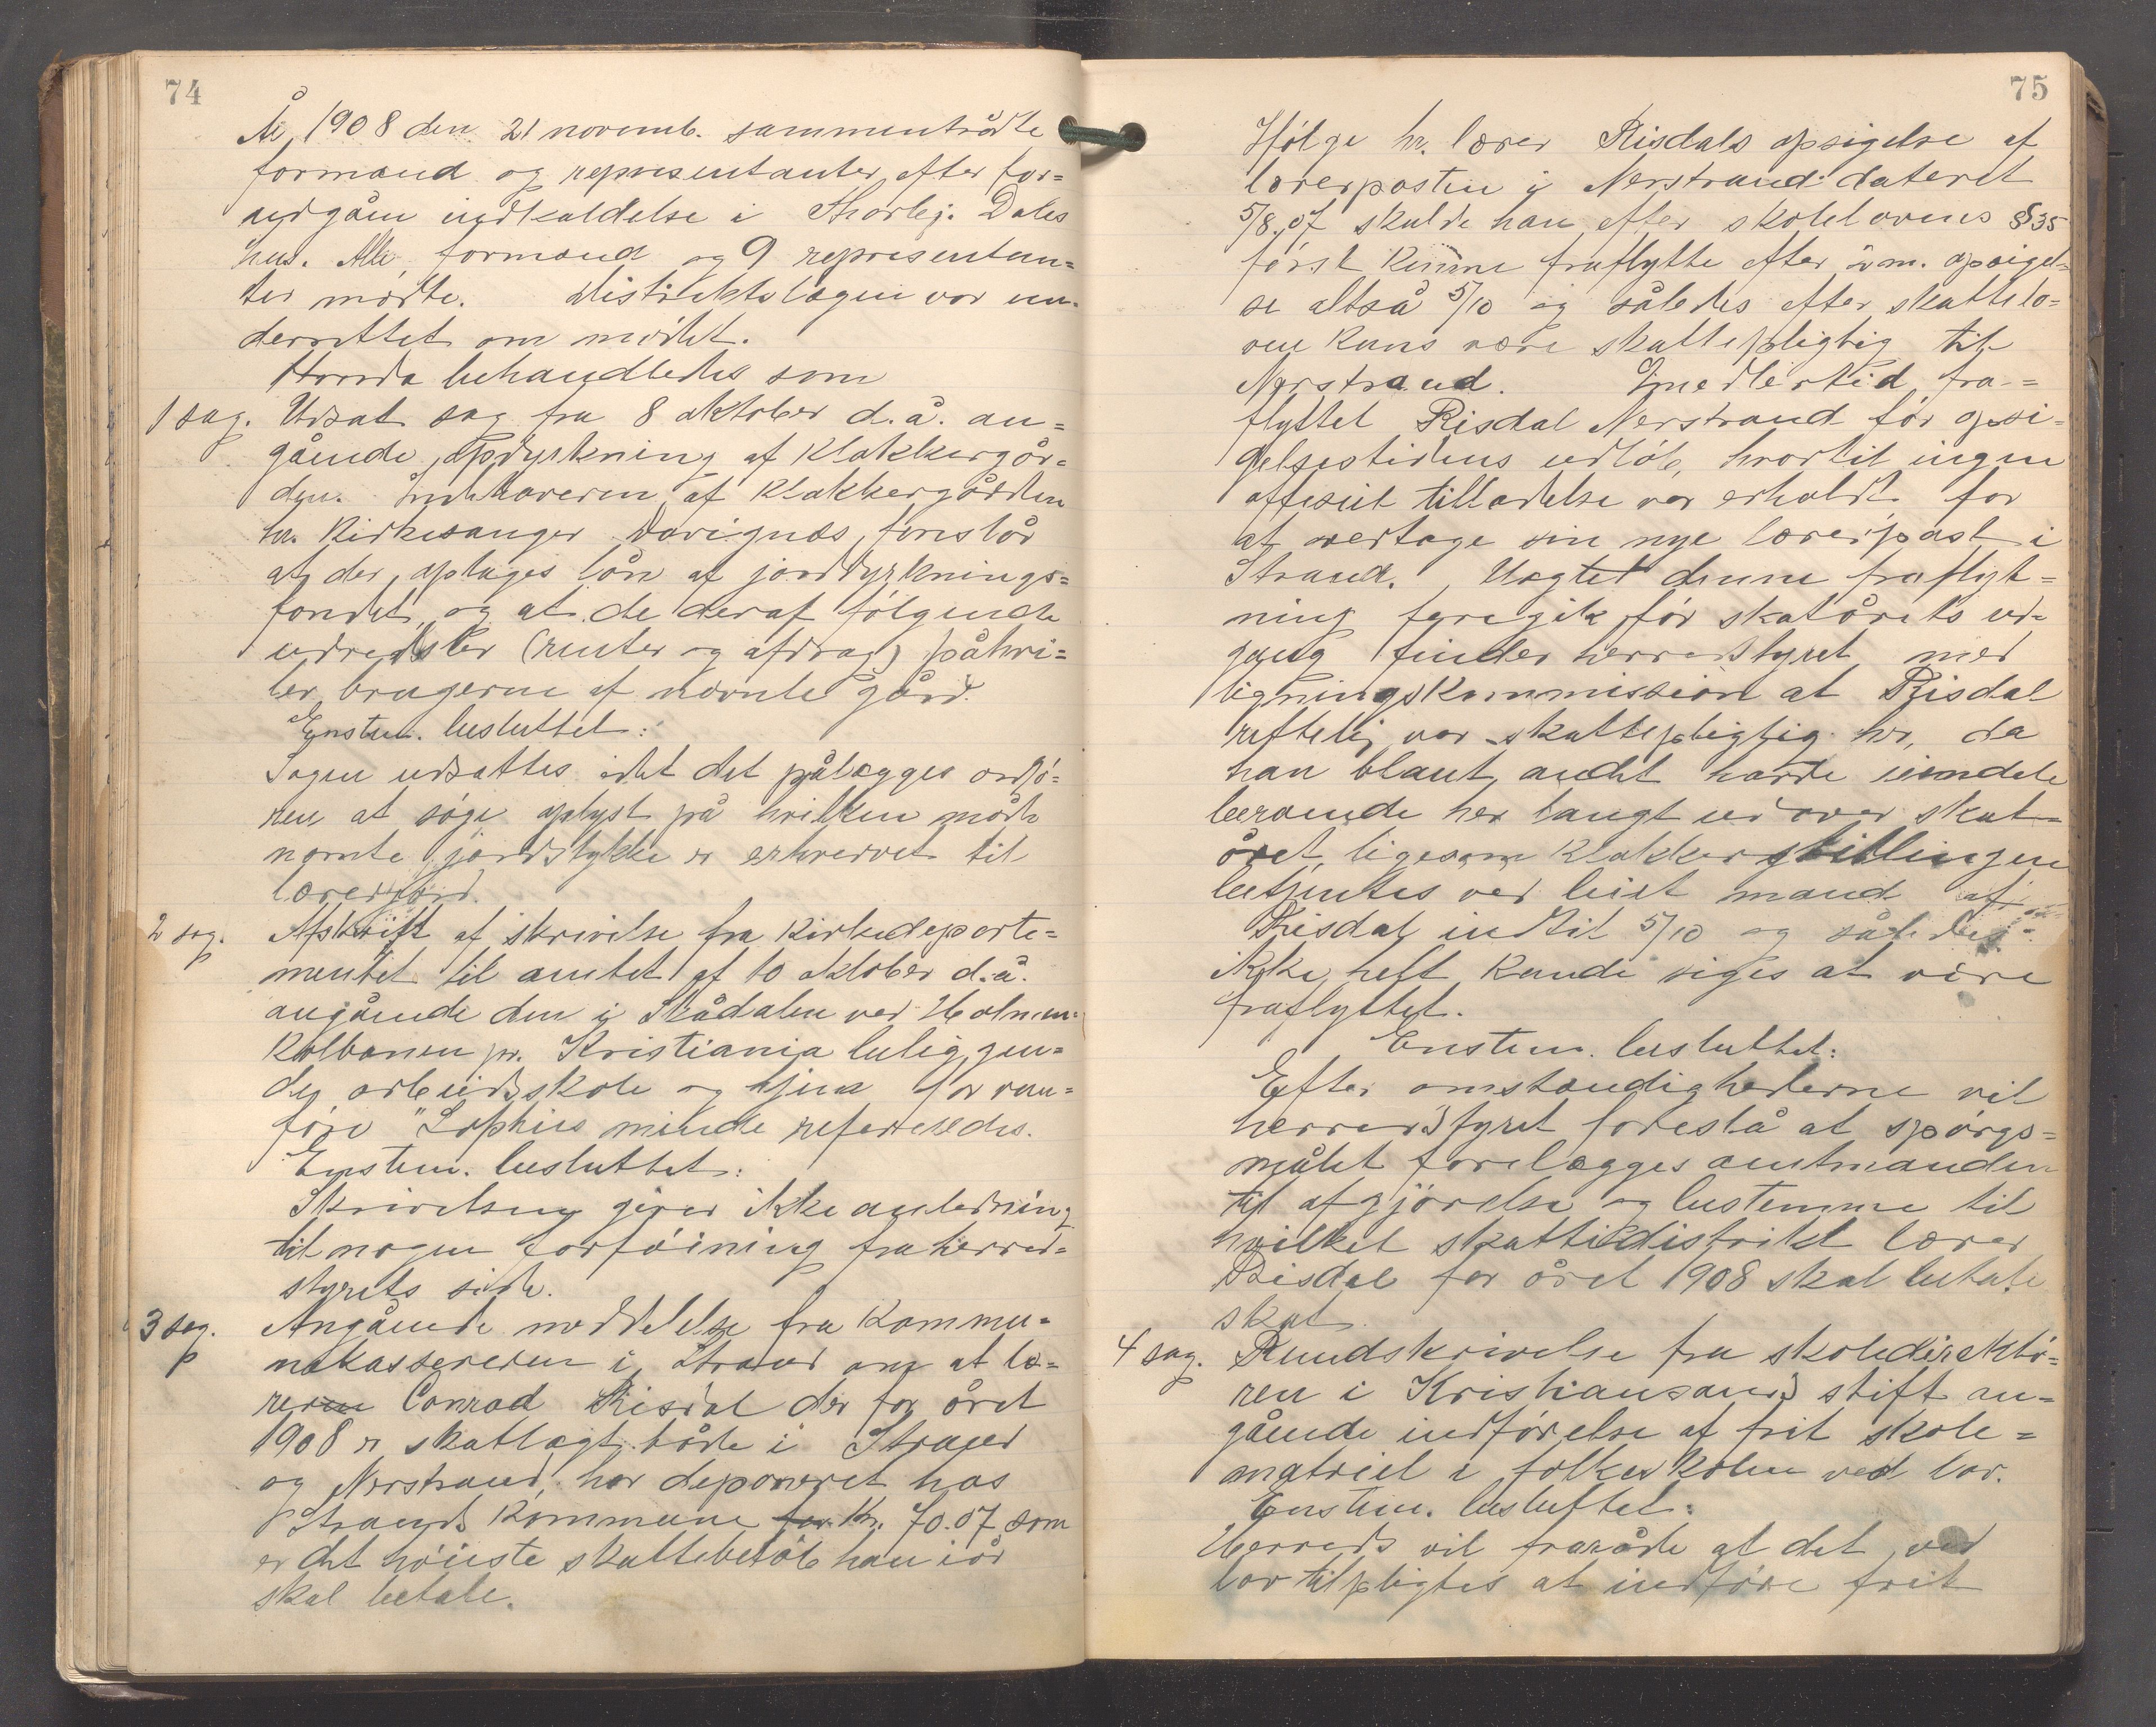 74
År 1908 den 21 novemb. sammentrådte
formænd og representanter efter for-
udgåen indkaldelse i Thorbj. Dales
hus. Alle formænd og 9 representan-
ter mødte. Distriktslægen var un-
derrettet om mødet.
Hvorda behandledes som
1 sag. Udsat sag fra 8 oktober d.å. an-
gående opdyrkning af Klokkergår-
den. Indehaveren af Klokkergården
hr. Kirkesanger Varignæs foreslår
at der optages lån af jorddyrknings-
fondet og at de deraf følgende
udredsler (renter og afdrag) påhvi-
ler brugerne af nævnte gård.
Enstem. besluttet:
Sagen udsattes idet det pålægges ordfø-
ren at søge oplyst på hvilken måde
nævnte jordstykke er erhvervet til
lærerjord.
2 sag. Afskrift af skrivelse fra Kirkedeparte-
mentet til amtet af 10 oktober d.å.
angående den i Skådalen ved Holmen-
kolbanen pr. Kristiania belig gen-
de arbeidsskole og hjem for van-
føre "Sophies minde refereredes.
Enstem. besluttet:
Skrivelsen giver ikke anledning
til nogen forføining fra herreds-
styrets side.
3 sag. Angående meddelelse fra Kommu-
nekassereren i Strand om at læ-
reren Conrad Risdal der for året
1908 er skatlagt både i Strand
og Nerstrand, har deponeret hos
Strands Kommune for Kr. 70.07 som
er det høieste skattebeløb han i år
skal betale.
75
Ifølge hr. lærer Risdals opsigelse af
lærerposten i Nerstrand dateret
5/8.07 skulde han efter skolelovens §35
først kunne fraflytte efter 2 m. opsigel-
se altså 5/10 og således efter skattelo-
ven kuns være skattepligtig til
Nerstrand. Imedlertid fra-
flyttet Risdal Nerstrand før opsi-
gelsestidens udløb, hvortil ingen
offisiel tilladelse var erholdt for
at overtage sin nye lærerpost i
Strand. Uagtet denne fraflyt-
ning foregik før skatårets ud-
gang finder herredstyret med
ligningskommission at Risdal
rettelig var skattepligtig her, da
han blant andet havde eiendele
beroende her langt ud over skat-
året, ligesom klokkerstillingen
betjentes ved leiet mand af
Risdal indtil 5/10 og således
ikke helt kunde siges at være
fraflyttet.
Enstem. besluttet:
Efter omstændighederne vil
herredstyret foreslå at spørgs-
målet forelægges amtmanden
til afgjørelse og bestemme til
hvilket skattedistrikt lærer
Risdal for året 1908 skal betale
skat.
4 sag. Rundskrivelse fra skoledirektø-
ren i Kristiansands stift an-
gående indførelse af frit skole-
matriel i folkeskolen ved lov.
Enstem. besluttet:
Herreds vil fraråde at det ved
lov tilpligtes at indføre frit